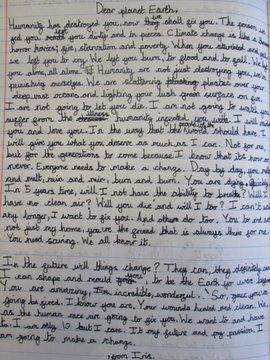 Dear planet Earth,
Humanity has destroyed you, now we shall fix you. The person we
left you dirty and in pieces. Climate change is like a
horror movies; fire, starvation and poverty. When you
we left you to cry. We left you burn, to flood and to fall. We left
you alone, all alone. Humanity are not just destroying you, we are
punishing ourselves. We are scattering plastic over your
deep, vast oceans and lighting your lush green surface on fire.
I am not going to let you die. I am not going to watch
suffer from the illness humanity
you and love you. In the way that the world should have. I
will give you what you deserve as much as I can. Not for me,
but for the generations to come because I know that its now or
never. Everyone needs to make a change. Day by day, you
and melt, rain and rain, burn and burn. You are dying, quickly.
In 5 years time, will I not have the ability to breathe? Will I
have no clean air? Will you die and will I die? I can't
any longer, I want to fix you. And others do too. You to me are
not just my home, you're the friend that is always there for me.
You need saving. We all know it.
In the future will things change? They can, they definitely
I can shape and mould you to be the Earth you were
You are amazing, incredible, wonderful... So, you're
going be fixed. I know you are. Your wounds healed and clean. We
as the human race are going to fix you. We want to and have
to. I am only 10 but I care. It's my future and my passion. I
am going to save you.
from Iris.